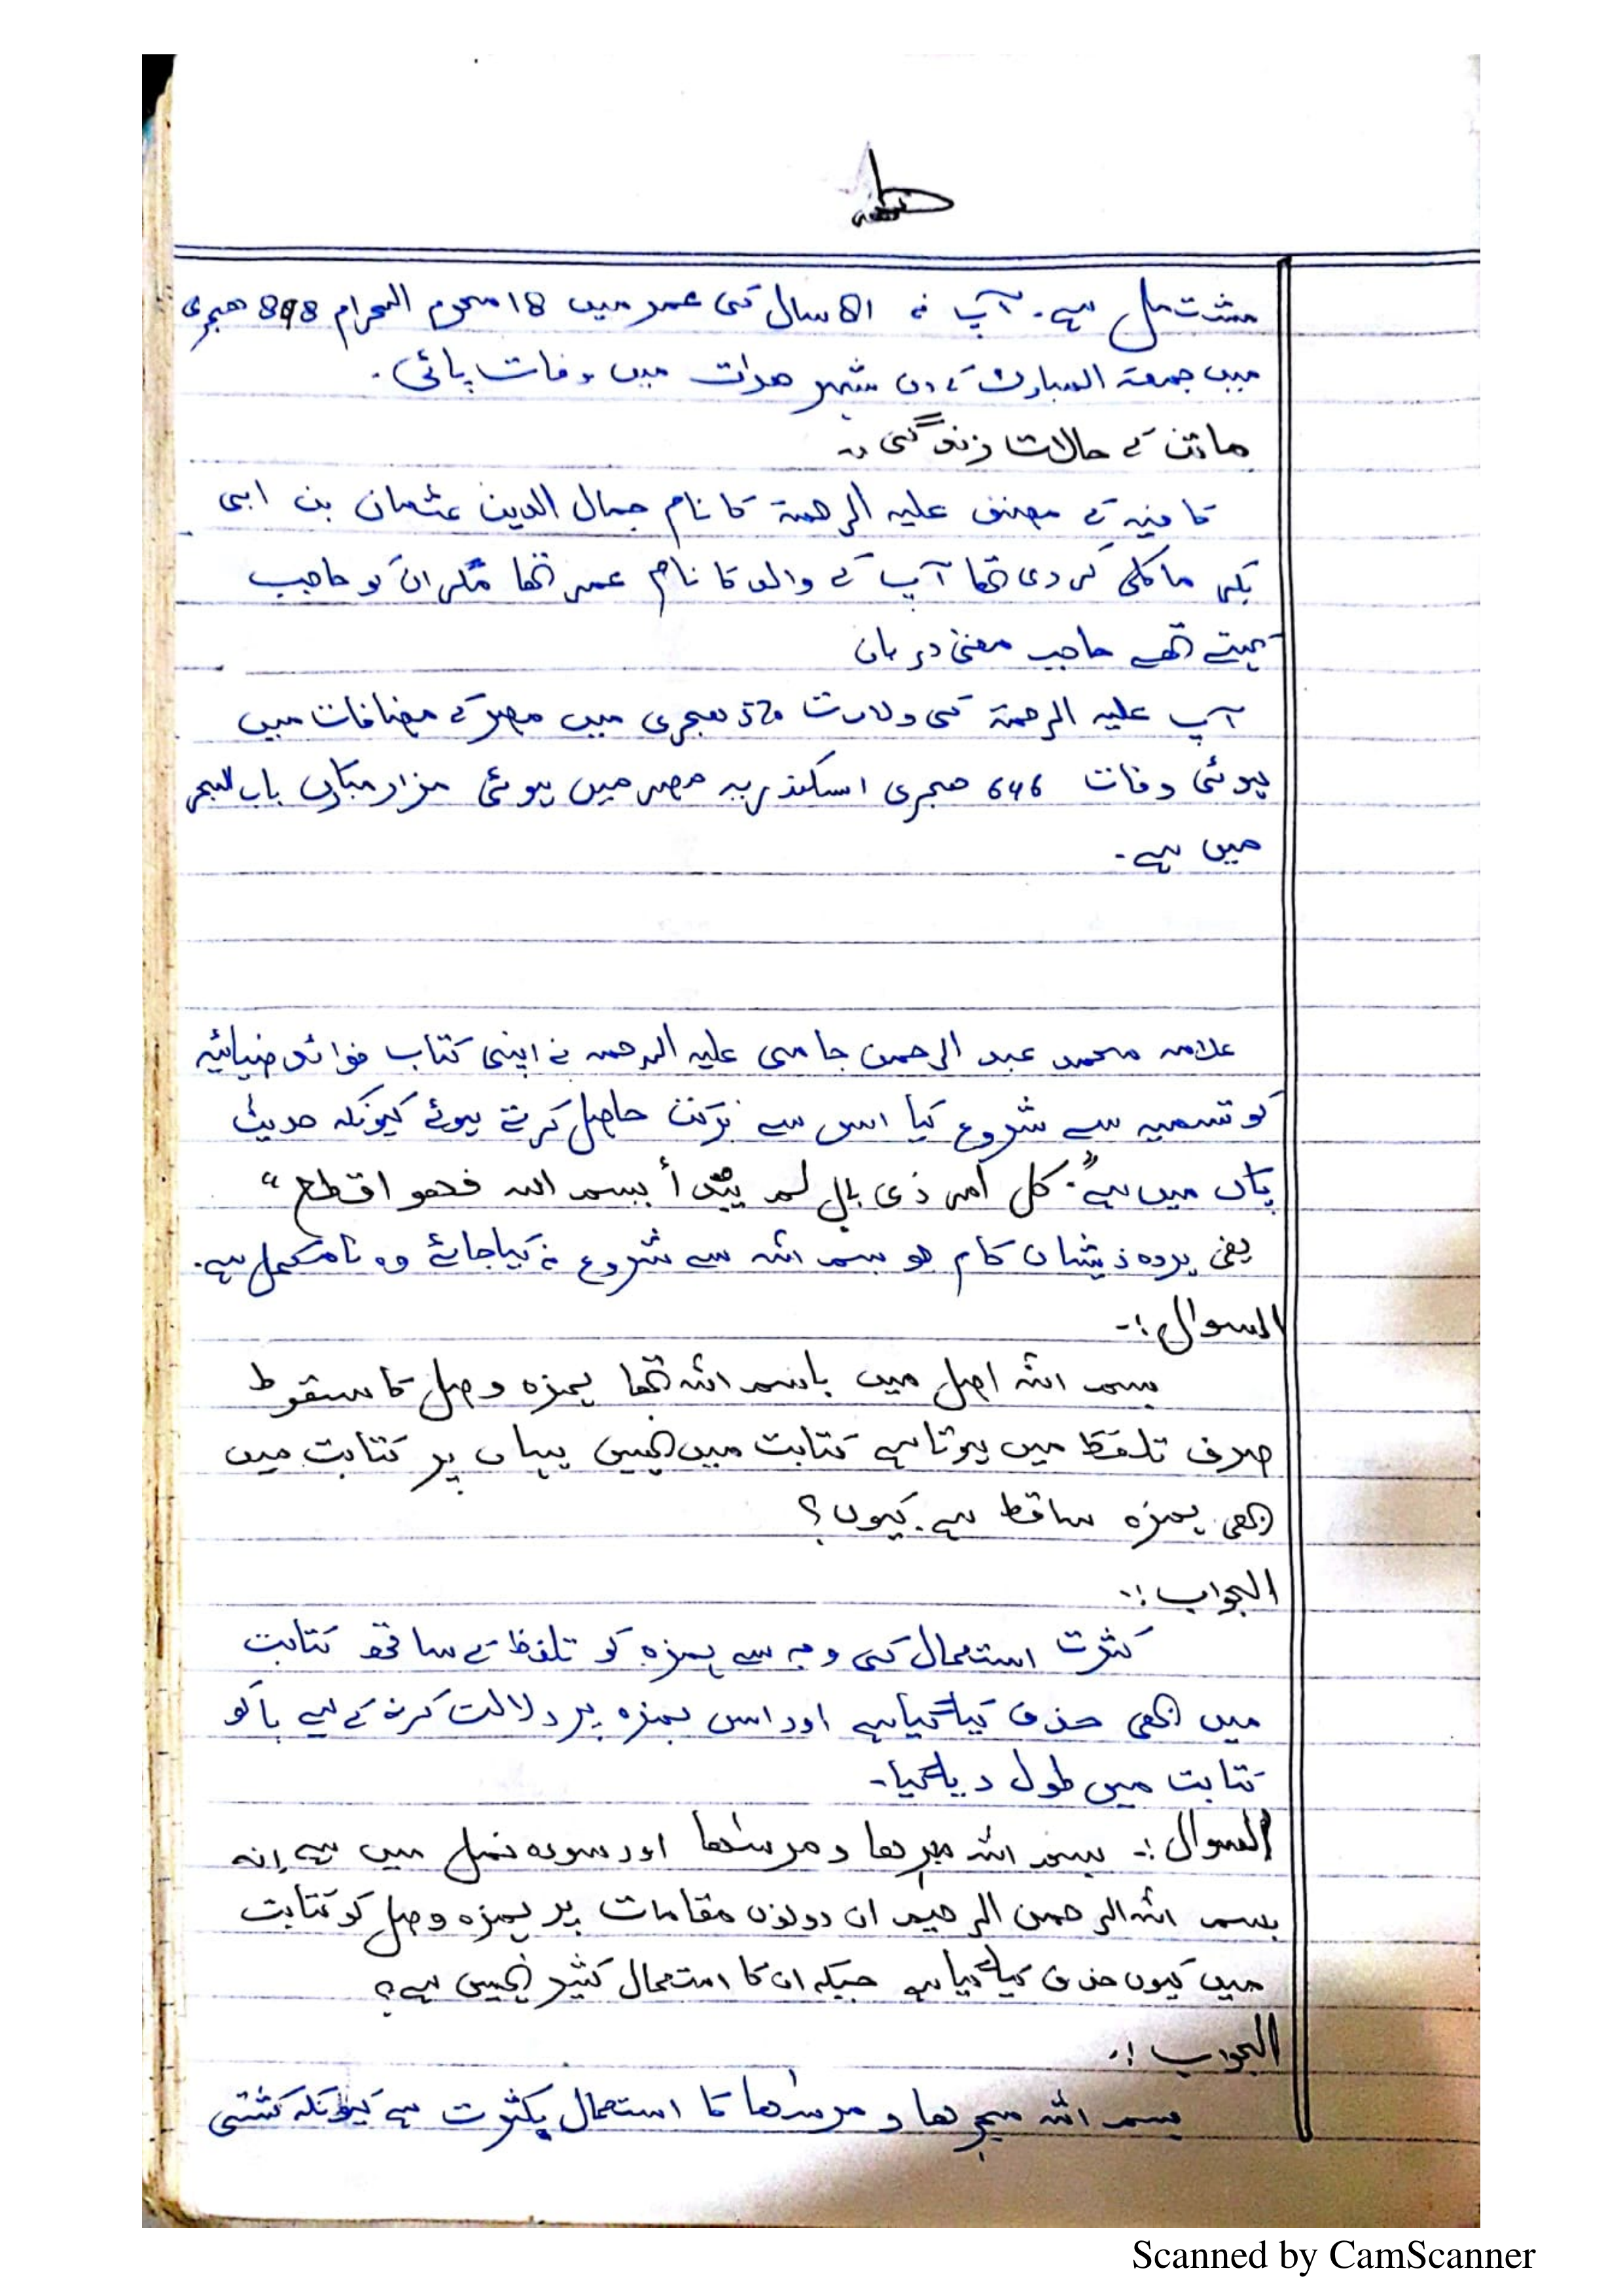 مشتمل ہے۔ آپ نے 81 سال کی عمر میں 18 محرم الحرام 898 ھجری
میں جمعۃ المبارک کے دن شہر ھرات میں وفات پائی۔
ماتن کے حالات زندگی :۔
کافیہ کے مصنف علیہ الرحمۃ کا نام جمال الدین عثمان بن ابی
بکر مالکی کردی تھا آپ کے والد کا نام عمر تھا مگر ان کو حاجب
کہتے تھے حاجب معنی دربان
آپ علیہ الرحمۃ کی ولادت 570 ھجری میں مصر کے مضافات میں
ہوئی وفات 646 ھجری اسکندریہ مصر میں ہوئی مزار مبارک باب البحر
میں ہے۔
علامہ محمد عبد الرحمن جامی علیہ الرحمہ نے اپنی کتاب فوائد ضیائیہ
کو تسمیہ سے شروع کیا اس سے برکت حاصل کرتے ہوئے کیونکہ حدیث
پاک میں ہے "کل امر ذی بال لم یبدأ ببسم اللہ فھو اقطع"
یعنی ہر وہ ذیشان کام جو بسم اللہ سے شروع نہ کیا جائے وہ نامکمل ہے۔
السوال :۔
بسم اللہ اصل میں باسم اللہ تھا ہمزہ وصل کا سقوط
صرف تلفظ میں ہوتا ہے کتابت میں نہیں یہاں پر کتابت میں
بھی ہمزہ ساقط ہے کیوں؟
الجواب :۔
کثرت استعمال کی وجہ سے ہمزہ کو تلفظ کے ساتھ کتابت
میں بھی حذف کیا گیا ہے اور اس ہمزہ پر دلالت کرنے کے لیے با کو
کتابت میں طول دیا گیا۔
السوال :۔ بسم اللہ مجرھا و مرسٰھا اور سورہ نمل میں ہے انہ
بسم اللہ الرحمن الرحیم ان دونوں مقامات پر ہمزہ وصل کو کتابت
میں کیوں حذف کیا گیا ہے جبکہ ان کا استعمال کثیر نہیں ہے؟
الجواب :۔
بسم اللہ مجرھا و مرسٰھا کا استعمال بکثرت ہے کیونکہ کشتی
Scanned by CamScanner